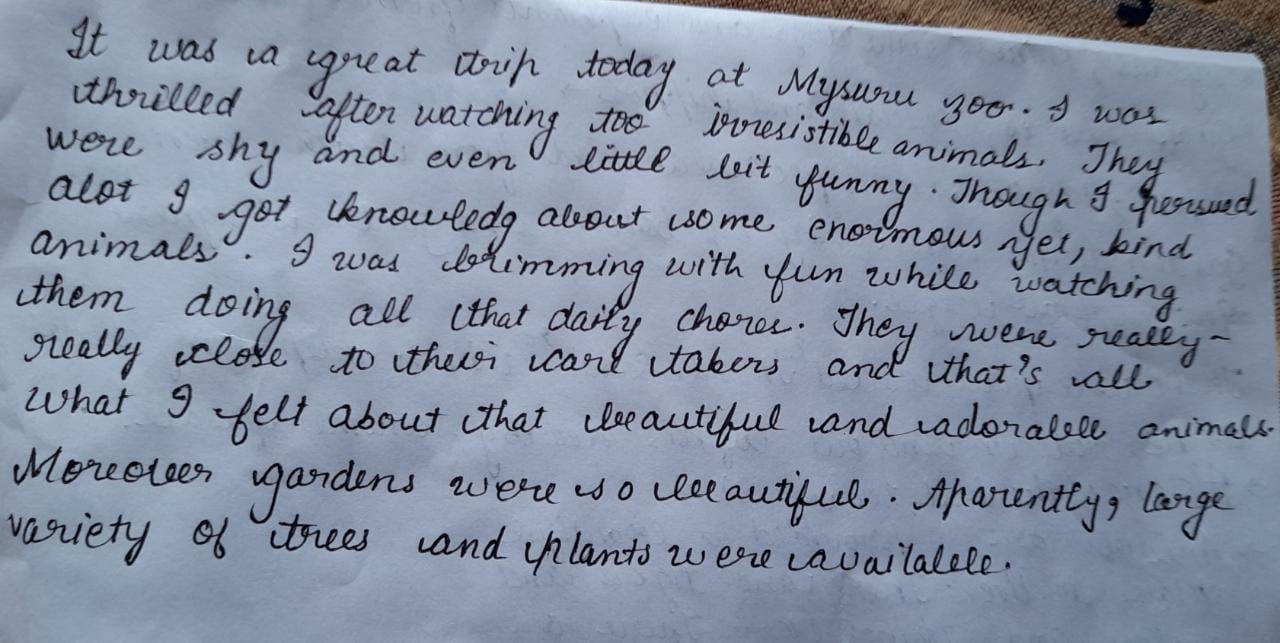 It was a great trip today at Mysuru zoo. I was
thrilled after watching too irresistible animals. They
were shy and even little bit funny. Though I persued
alot I got knowledg about some enormous yet, kind
animals. I was brimming with fun while watching
them doing all that daily chores. They were really-
really close to their care takers and that's all
what I felt about that beautiful and adorable animals.
Moreover gardens were so beautiful. Aparently, large
variety of trees and plants were available.